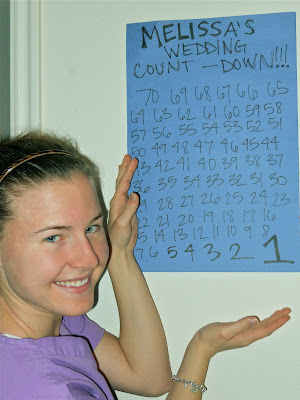 MELISSA'S
WEDDING
COUNT-DOWN!!!
70 69 68 67 66 65
64 63 62 61 60 59 58
57 56 55 54 53 52 51
50 49 48 47 46 45 44
43 42 41 40 39 38 37
36 35 34 33 32 31 30
29 28 27 26 25 24 23
22 21 20 19 18 17 16
15 14 13 12 11 10 9 8
7 6 5 4 3 2 1